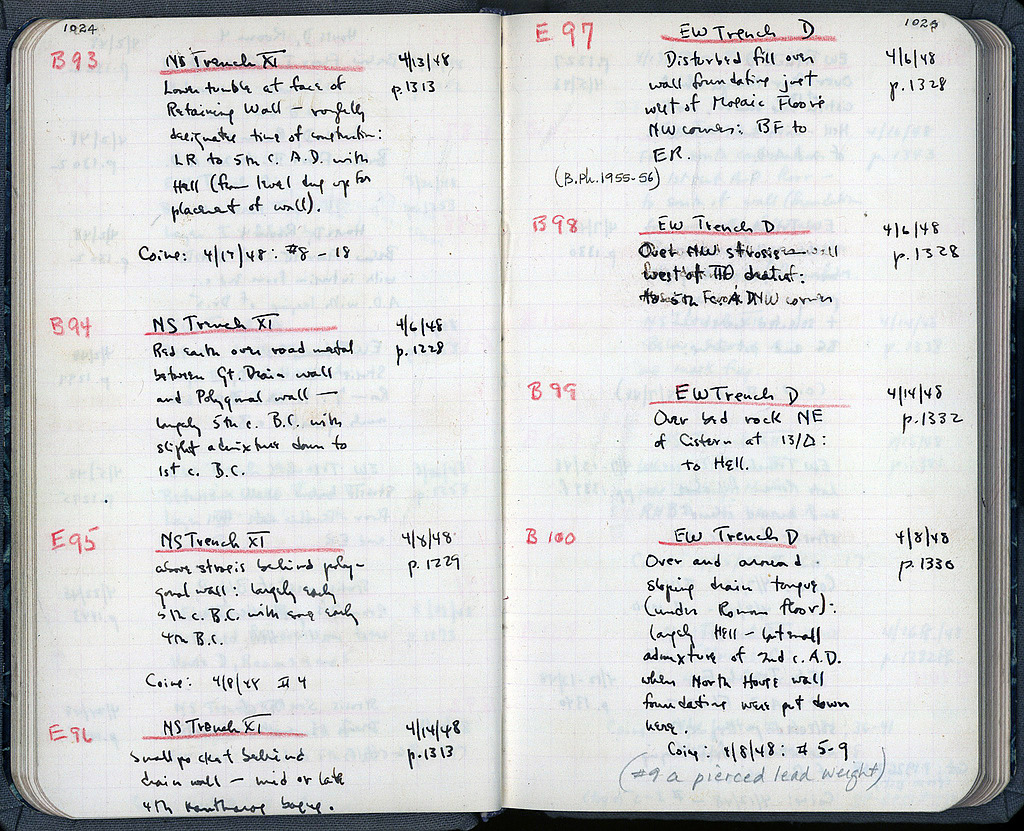 1024
B93 NS Trench XI 4/13/48
Lower tumble at face of p.1313
Retaining Wall – roughly
designates time of construction:
LR to 5th c. A.D. with
Hell (from level dug up for
placement of wall).
Coins: 4/17/48: #8 – 18
B94 NS Trench XI 4/6/48
Red earth over road metal p.1228
between Gt. Drain wall
and Polygonal wall –
largely 5th c. B.C. with
slight admixture down to
1st c. B.C.
E95 NS Trench XI 4/8/48
above strosis behind poly- p.1229
gonal wall: largely early
5th c. B.C. with some early
4th B.C.
Coins: 4/8/48 #4
E96 NS Trench XI 4/14/48
Small pocket behind p.1313
drain wall – mid or late
4th Kantharos bases.
1025
E97 EW Trench D
Disturbed fill over 4/6/48
wall foundating just p.1328
west of Mosaic Floors
NW corner: BF to
ER.
(B.Ph.1955-56)
B98 EW Trench D 4/6/48
Over strosis wall p.1328
west of
5th A.D. NW corner
B99 EW Trench D 4/14/48
Over bed rock NE p.1332
of Cistern at 13/Δ:
to Hell.
B100 EW Trench D 4/8/48
Over and around p.1330
sloping drain tongue
(under Roman floor):
largely Hell – but small
admixture of 2nd c. A.D.
when North House wall
foundating were put down
here.
Coins: 4/8/48: # 5-9
(#9 a pierced lead weight)